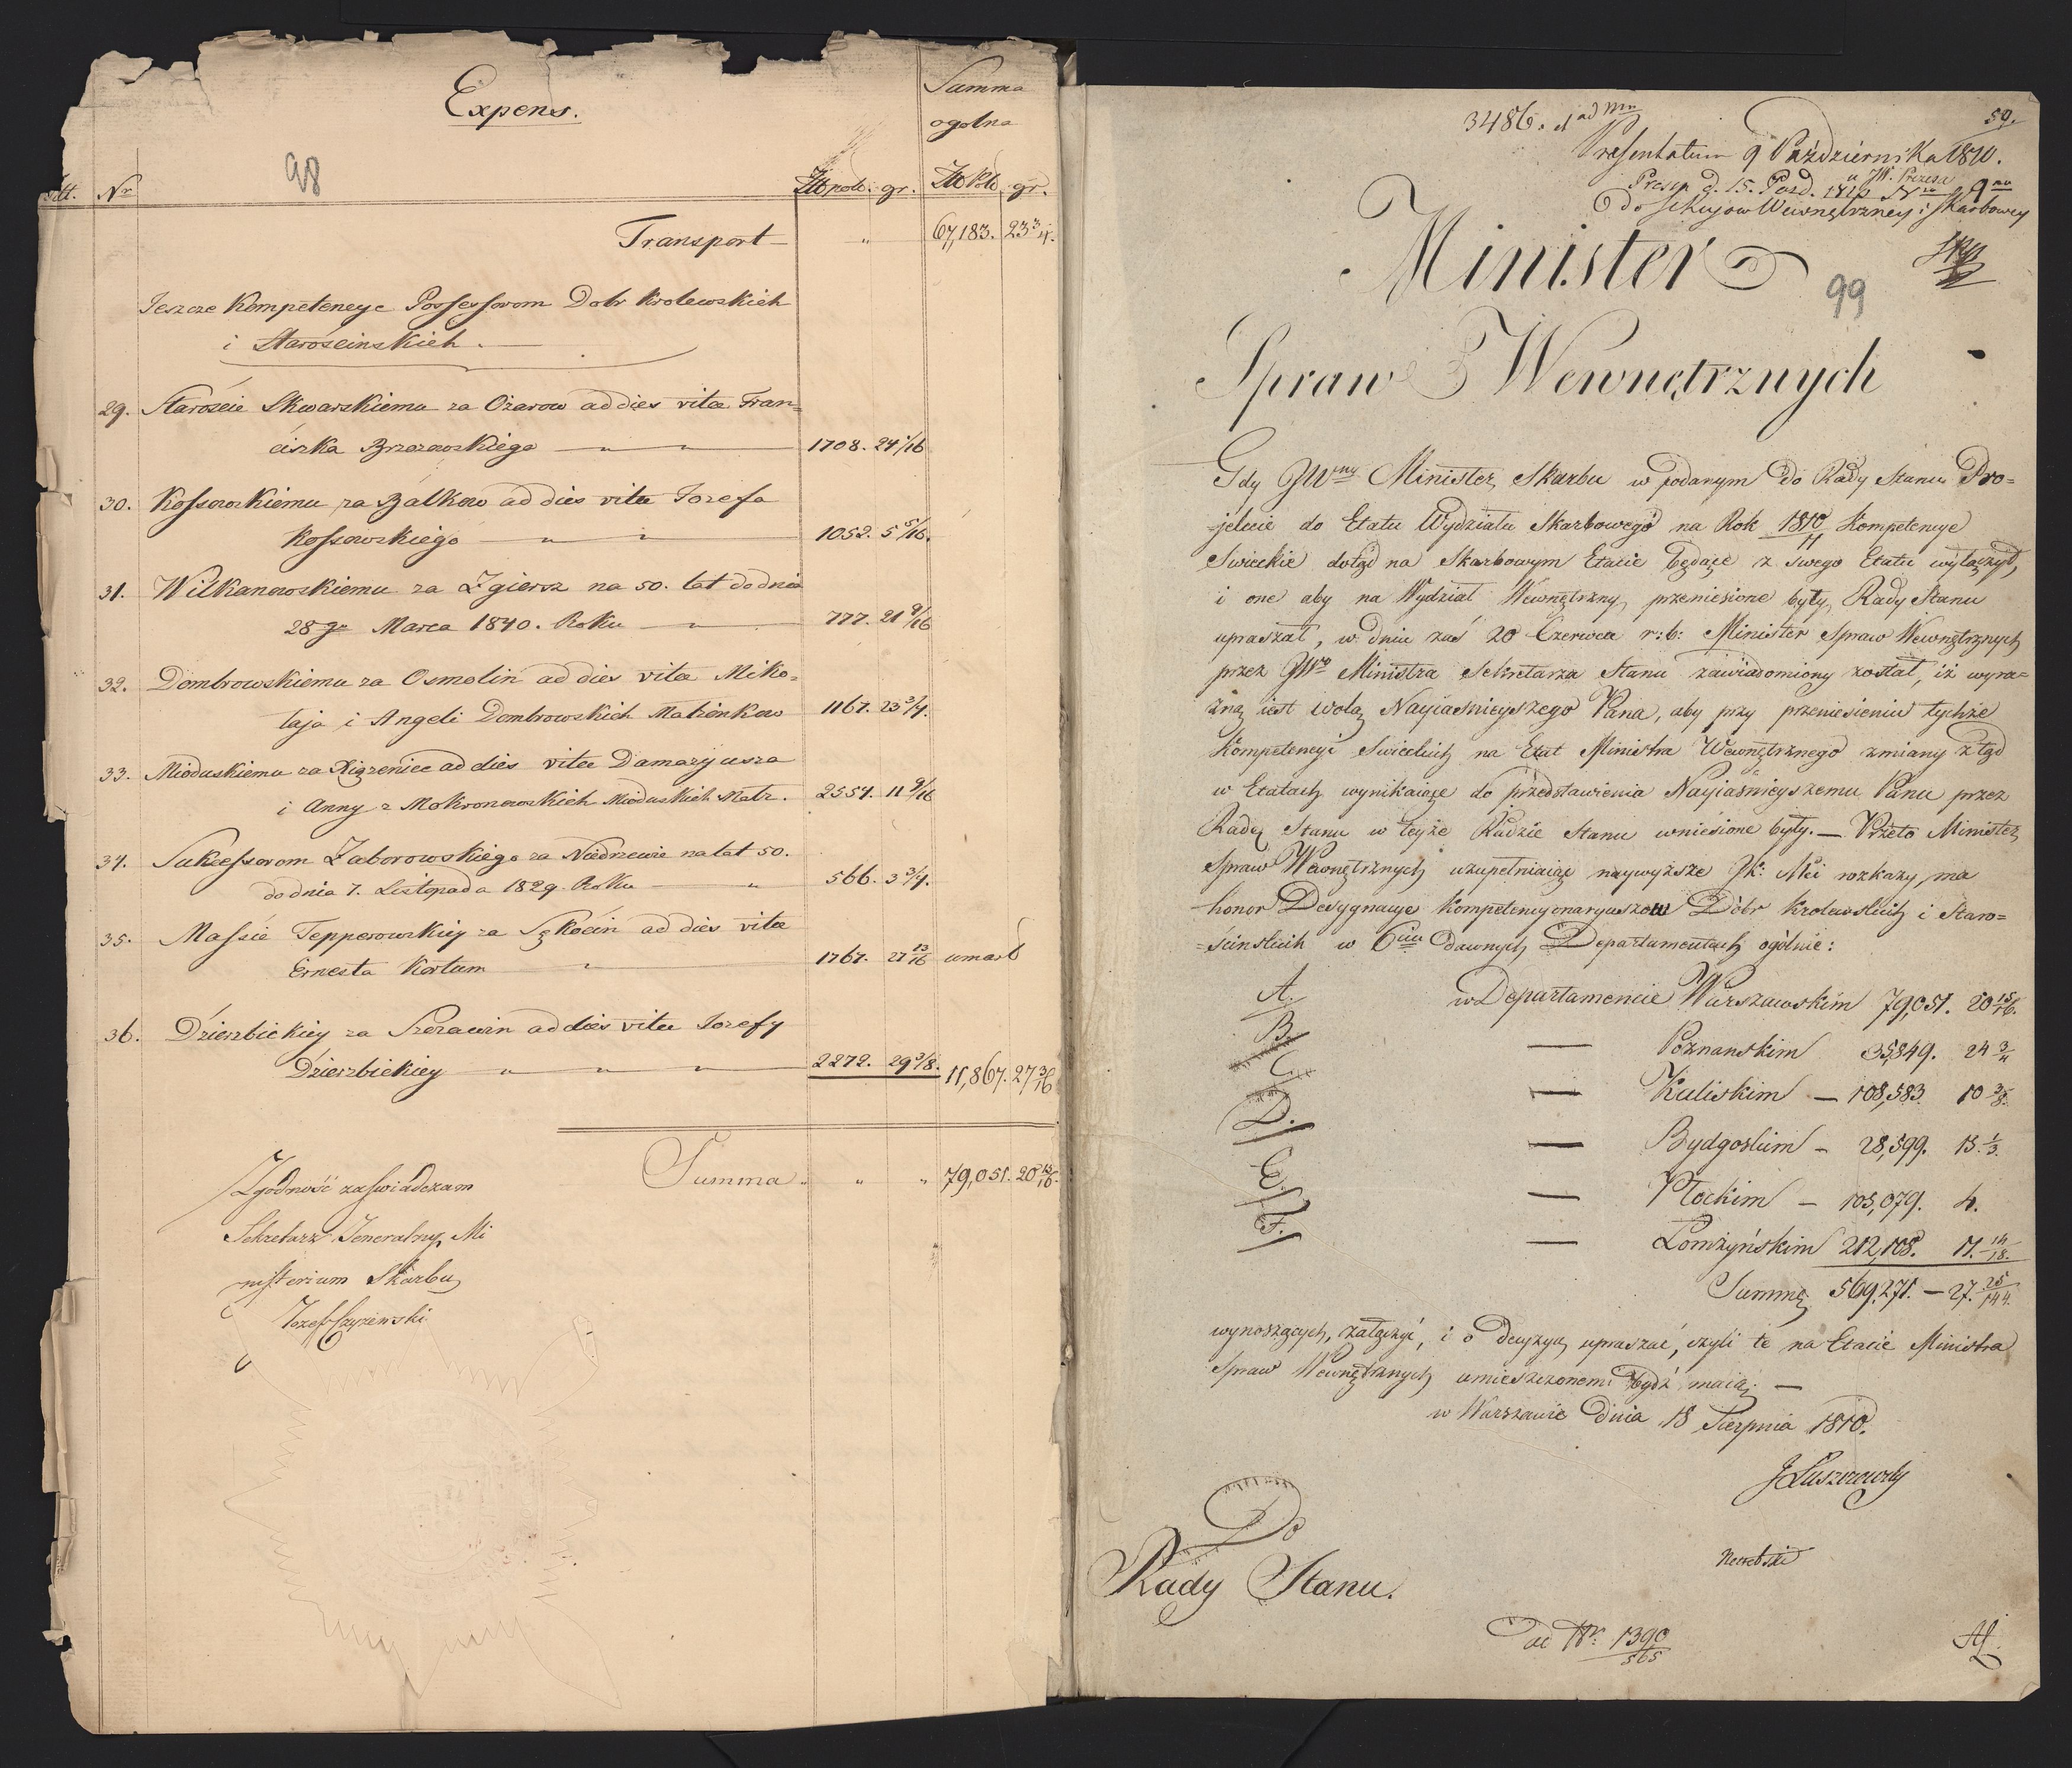 Expens.
98
Summa
ogolna
Nr
Zł. polo. gr. Zł. Pol. gr.
Transport — „ 67,183. 23 3/4.
Jeszcze Kompetencye Possessorom Dobr Krolewskich
i Starościnskich. —
29. Staroście Skwarskiemu za Ożarow ad dies vitæ Fran=
ciszka Brzozowskiego — „ — „ — 1708. 24 1/16
30. Kossowskiemu za Balkow ad dies vitæ Jozefa
Kossowskiego — „ — „ — 1052. 5 5/16.
31. Wilkanowskiemu za Zgiersz na 50. lat do dnia
28go Marca 1840. Roku — „ — 777. 21 9/16
32. Dombrowskiemu za Osmolin ad dies vitæ Miko=
łaja i Angeli Dombrowskich Małżonkow 1167. 23 3/4.
33. Mioduskiemu za Xiążenice ad dies vitæ Damazyusza
i Anny z Mokronowskich Mioduskich Małż. 2554. 11 9/16
34. Sukcessorom Zaborowskiego za Niedrzewie na lat 50.
do dnia 7. Listopada 1829. Roku — „ 566. 3 3/4.
35. Massie Tepperowskiey za Sękocin ad dies vitæ
Ernesta Kortum — „ — 1767. 27 13/16 umarł
36. Dzierzbickiey za Szczawin ad dies vitæ Jozefy
Dzierzbickiey — „ — „ — „ — 2272. 29 3/8. 11,867. 27 3/16
Summa „ „ „ 79,051. 20 15/16.
Zgodność zaswiadczam
Sekretarz Jeneralny Mi
nisterium Skarbu
59.
3486. d ad Mm
Presentatum 9 Października 1810.
u JW. Prezesa
Presp. d. 15. Pazd. 1810
do Sekcyow Wewnętrzney i Skarbowey
Minister
99
Spraw Wewnętrznych
Gdy JWny Minister Skarbu w podanym do Rady Stanu Pro=
=jekcie do Etatu Wydziału Skarbowego na Rok 1810/11 Kompetencye
Swieckie dotąd na Skarbowym Etacie będące z swego Etatu wyłączył,
i one aby na Wydział Wewnętrzny przeniesione były, Rady Stanu
upraszał, w dniu zaś 20 Czerwca r: b: Minister Spraw Wewnętrznych
przez JWo Ministra Sekretarza Stanu zawiadomiony został, iż wyra=
źną iest wolą Nayiaśnieyszego Pana, aby przy przeniesieniu tychże
Kompetencyi Swieckich na Etat Ministra Wewnętrznego zmiany z tąd
w Etatach wynikaiące do przedstawienia Nayiaśnieyszemu Panu przez
Radę Stanu w teyże Radzie Stanu wniesione były. — Przeto Minister
Spraw Wewnętrznych uzupełniaiąc naywyższe JK: Mci rozkazy, ma
honor Desygnacye Kompetencyonaryuszow Dobr Krolewskich i Staro=
=ścinskich w 6ciu dawnych Departamentach ogólnie:
A. w Departamencie Warszawskim 79,051. 20 15/16.
B. — Poznanskim 35,849. 24 3/4
C. — Kaliskim — 108,583. 10 3/8.
D. — Bydgoskim — 28,599. 13. 1/3.
E. — Płockim — 105,079. 4.
F. — Łomżyńskim 212,108. 11. 14/18.
Summę 569,271. — 27. 25/144.
wynoszących, załączyć, i o decyzyą upraszać, czyli te na Etacie Ministra
Spraw Wewnętrznych umieszczonemi bydź maią. —
w Warszawie dnia 18 Sierpnia 1810.
JŁuszczewsky
Do
Rady Stanu.
ad Nr: 1390/565